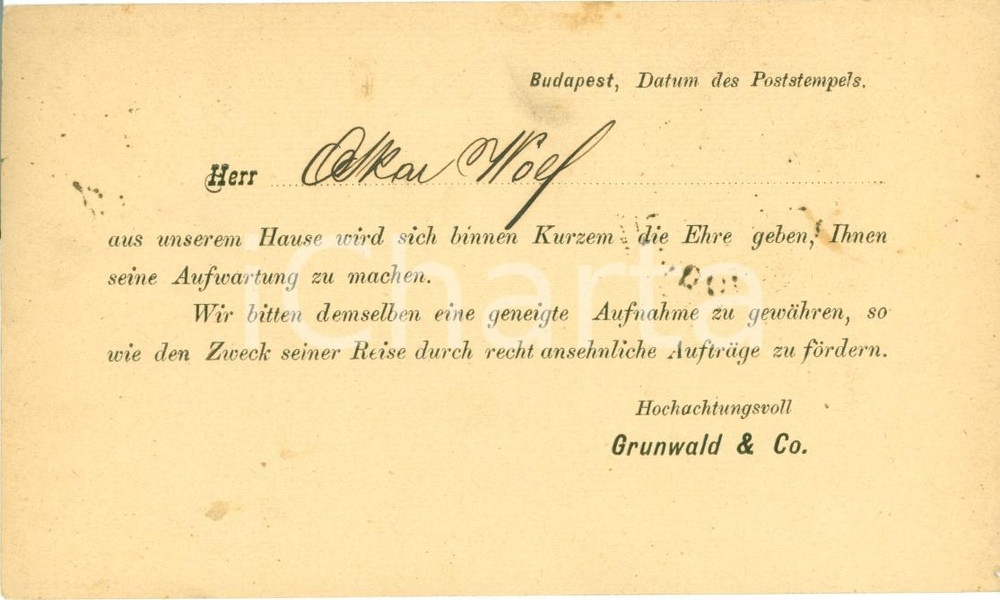 Budapest, Datum des Poststempels.
Herr Oskar Wolf
aus unserem Hause wird sich binnen Kurzem die Ehre geben, Ihnen
seine Aufwartung zu machen.
Wir bitten demselben eine geneigte Aufnahme zu gewähren, so
wie den Zweck seiner Reise durch recht ansehnliche Aufträge zu fördern.
Hochachtungsvoll
Grunwald & Co.
iCharta